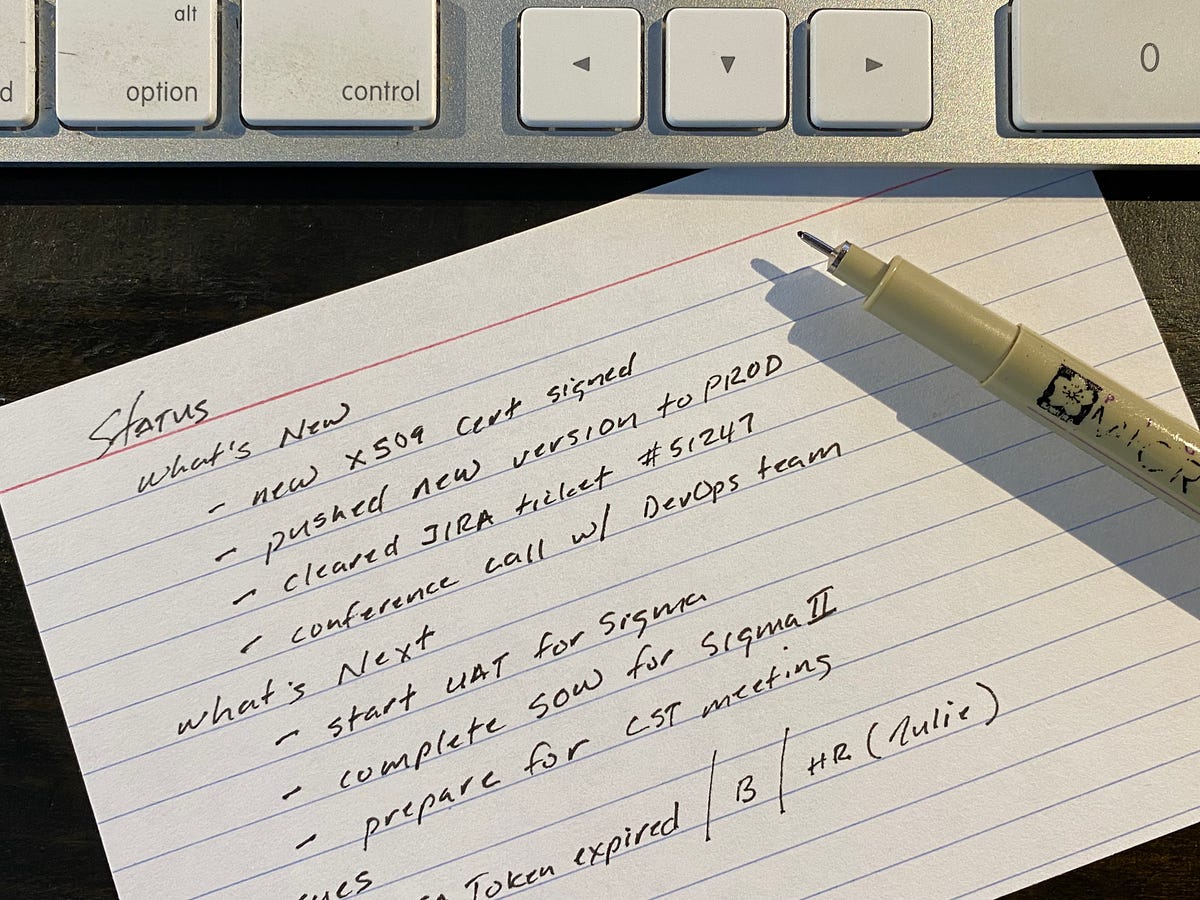 alt
d
option
control
◄
▼
►
0
Status
What's New
- new x509 cert signed
- pushed new version to PROD
- cleared JIRA ticket #51247
- conference call w/ DevOps team
What's Next
- start UAT for Sigma
- complete SOW for Sigma II
- prepare for CST meeting
Token expired | B | HR (Julie)
MICR